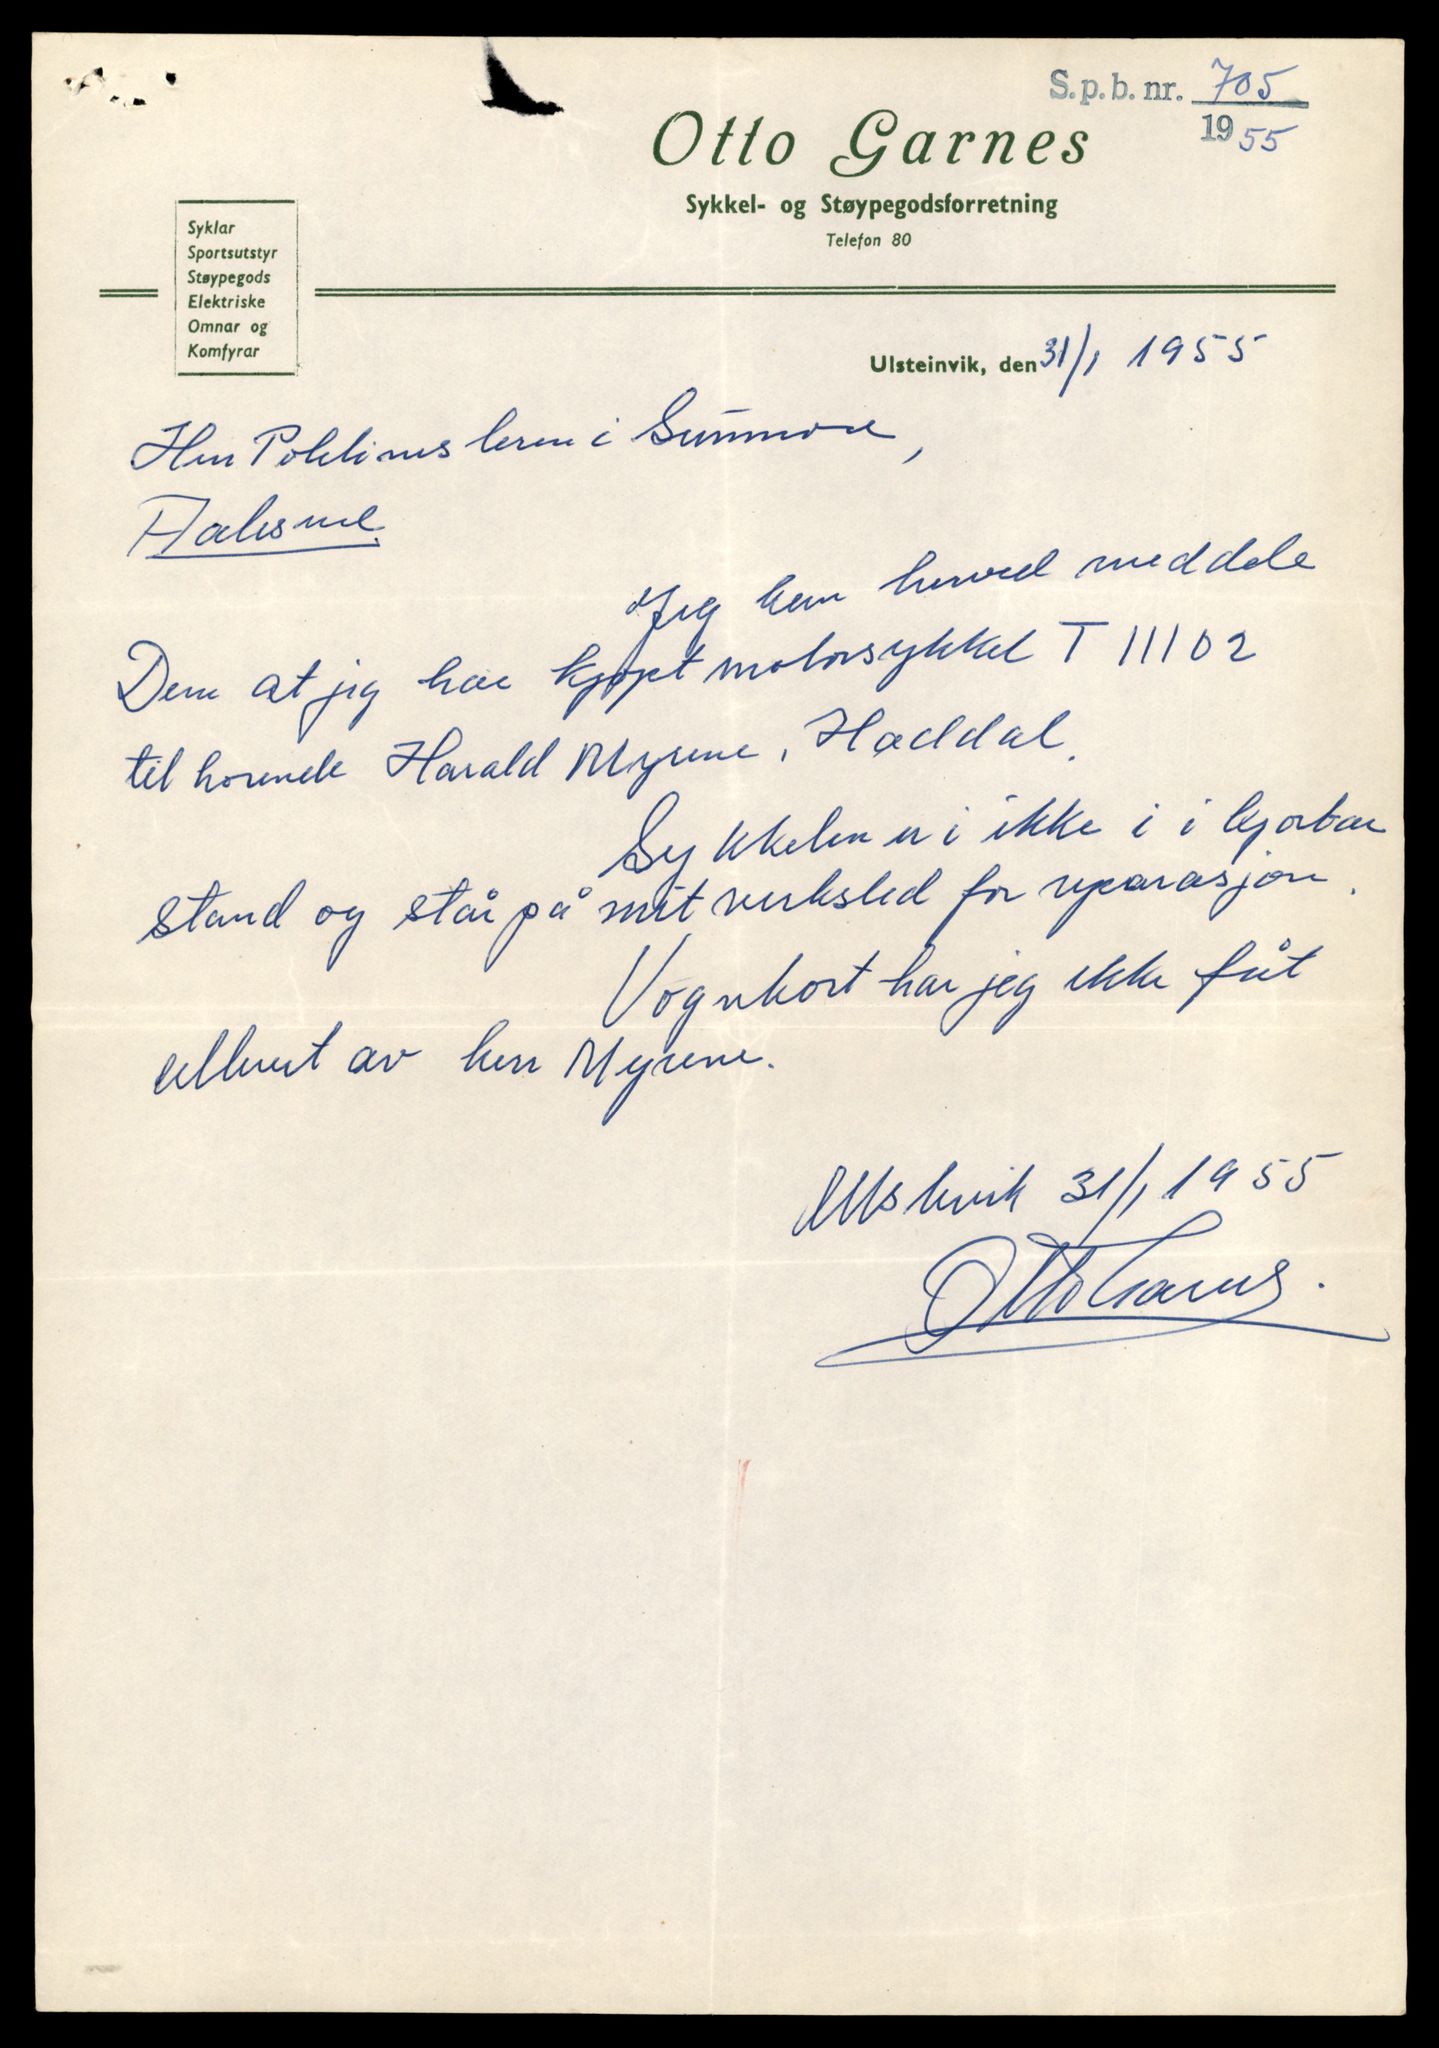 S.p.b. nr. 705
1955
Otto Garnes
Sykkel- og Støypegodsforretning
Telefon 80
Syklar
Sportsutstyr
Støypegods
Elektriske
Omnar og
Komfyrar
Ulsteinvik, den 31/1 1955
Herr Politimesteren i Sunnmøre,
Aalesund.
Jeg kan herved meddele
Dem at jeg har kjøpt motorsykkel T 11102
tilhørende Harald Myrene, Haddal.
Sykkelen er i ikke i i kjørbar
stand og står på mit verksted for reparasjon.
Vognkort har jeg ikke fåt
utlevert av herr Myrene.
Ulsteinvik 31/1 1955
Otto Garnes.